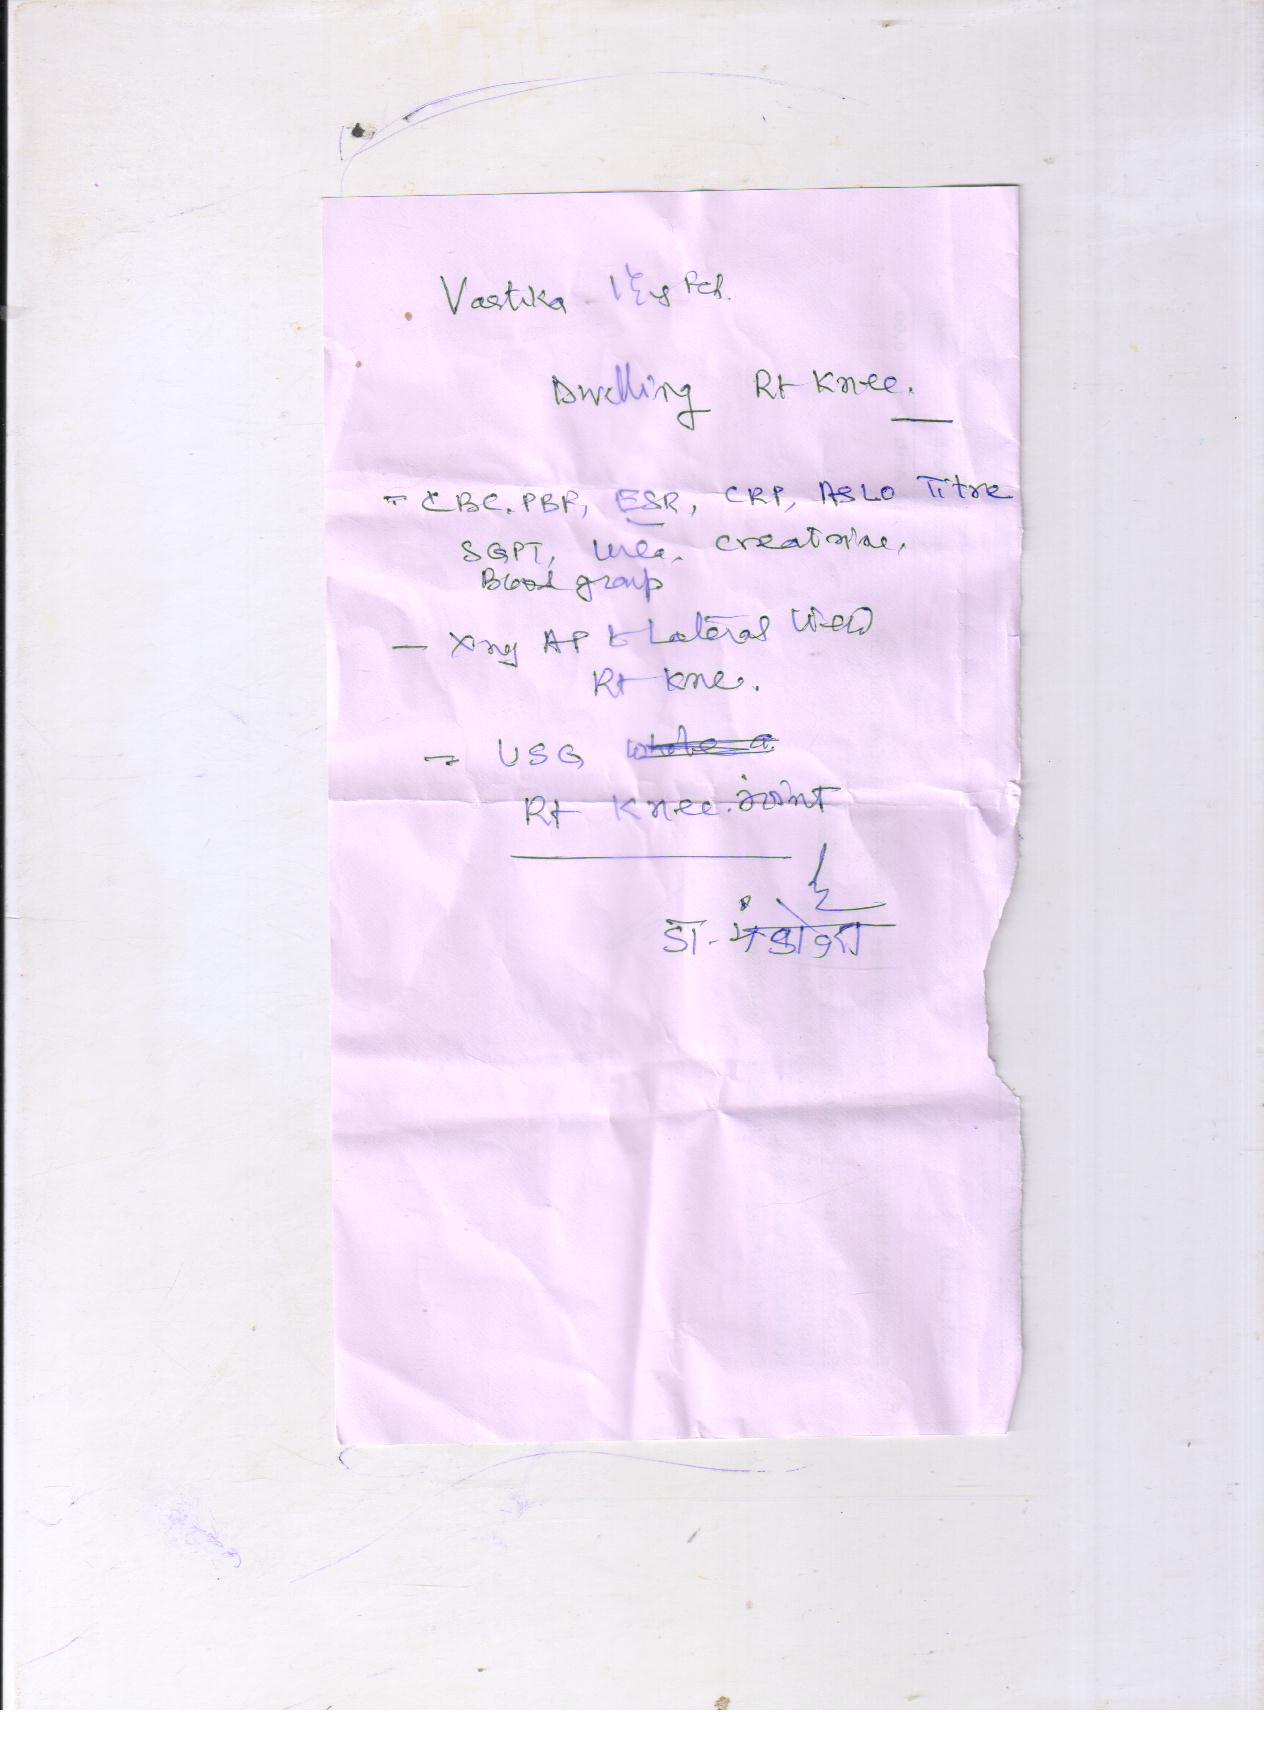 Vastika
Swelling Rt Knee.
- CBC, PBF, ESR, CRP, ASLO Titre
SGPT, Urea, Creatinine,
Blood group
- Xray AP & Lateral View
Rt Knee.
- USG
Rt Knee joint
डा-